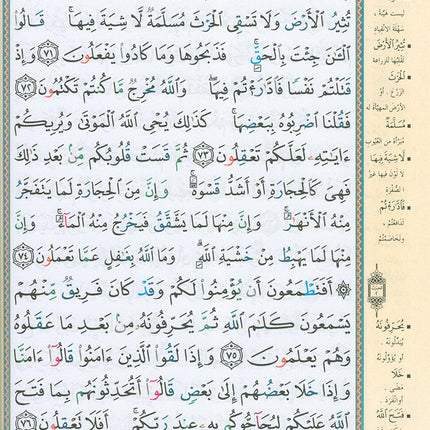 تُثِيرُ ٱلْأَرْضَ وَلَا تَسْقِى ٱلْحَرْثَ مُسَلَّمَةٌ لَّا شِيَةَ فِيهَا ۚ قَالُوا۟
ٱلْـَٰٔنَ جِئْتَ بِٱلْحَقِّ ۚ فَذَبَحُوهَا وَمَا كَادُوا۟ يَفْعَلُونَ ﴿٧١﴾ وَإِذْ
قَتَلْتُمْ نَفْسًا فَٱدَّٰرَْٰٔتُمْ فِيهَا ۖ وَٱللَّهُ مُخْرِجٌ مَّا كُنتُمْ تَكْتُمُونَ ﴿٧٢﴾
فَقُلْنَا ٱضْرِبُوهُ بِبَعْضِهَا ۚ كَذَٰلِكَ يُحْىِ ٱللَّهُ ٱلْمَوْتَىٰ وَيُرِيكُمْ
ءَايَٰتِهِۦ لَعَلَّكُمْ تَعْقِلُونَ ﴿٧٣﴾ ثُمَّ قَسَتْ قُلُوبُكُم مِّنۢ بَعْدِ ذَٰلِكَ
فَهِىَ كَٱلْحِجَارَةِ أَوْ أَشَدُّ قَسْوَةً ۚ وَإِنَّ مِنَ ٱلْحِجَارَةِ لَمَا يَتَفَجَّرُ
مِنْهُ ٱلْأَنْهَٰرُ ۚ وَإِنَّ مِنْهَا لَمَا يَشَّقَّقُ فَيَخْرُجُ مِنْهُ ٱلْمَآءُ ۚ وَإِنَّ
مِنْهَا لَمَا يَهْبِطُ مِنْ خَشْيَةِ ٱللَّهِ ۗ وَمَا ٱللَّهُ بِغَٰفِلٍ عَمَّا تَعْمَلُونَ ﴿٧٤﴾
۞ أَفَتَطْمَعُونَ أَن يُؤْمِنُوا۟ لَكُمْ وَقَدْ كَانَ فَرِيقٌ مِّنْهُمْ
يَسْمَعُونَ كَلَٰمَ ٱللَّهِ ثُمَّ يُحَرِّفُونَهُۥ مِنۢ بَعْدِ مَا عَقَلُوهُ
وَهُمْ يَعْلَمُونَ ﴿٧٥﴾ وَإِذَا لَقُوا۟ ٱلَّذِينَ ءَامَنُوا۟ قَالُوٓا۟ ءَامَنَّا
وَإِذَا خَلَا بَعْضُهُمْ إِلَىٰ بَعْضٍ قَالُوٓا۟ أَتُحَدِّثُونَهُم بِمَا فَتَحَ
ٱللَّهُ عَلَيْكُمْ لِيُحَآجُّوكُم بِهِۦ عِندَ رَبِّكُمْ ۚ أَفَلَا تَعْقِلُونَ ﴿٧٦﴾
ليست هيّنة ،
سهلة الانقياد
تُثِيرُ الأَرْضَ
تقلبها للزراعة
الْحَرْثَ
الزرع ، أو
الأرض المهيأة له
مُسَلَّمَةٌ
مبرّأة من العيوب
لَا شِيَةَ فِيهَا
لا لون فيها غير
الصفرة
فَادَّارَأْتُمْ
تدافعتم ،
وتخاصمتم
يُحَرِّفُونَهُ
يبدّلونه ،
أو يؤوّلونه
خَلَا
مضى ،
أو انفرد
فَتَحَ اللهُ